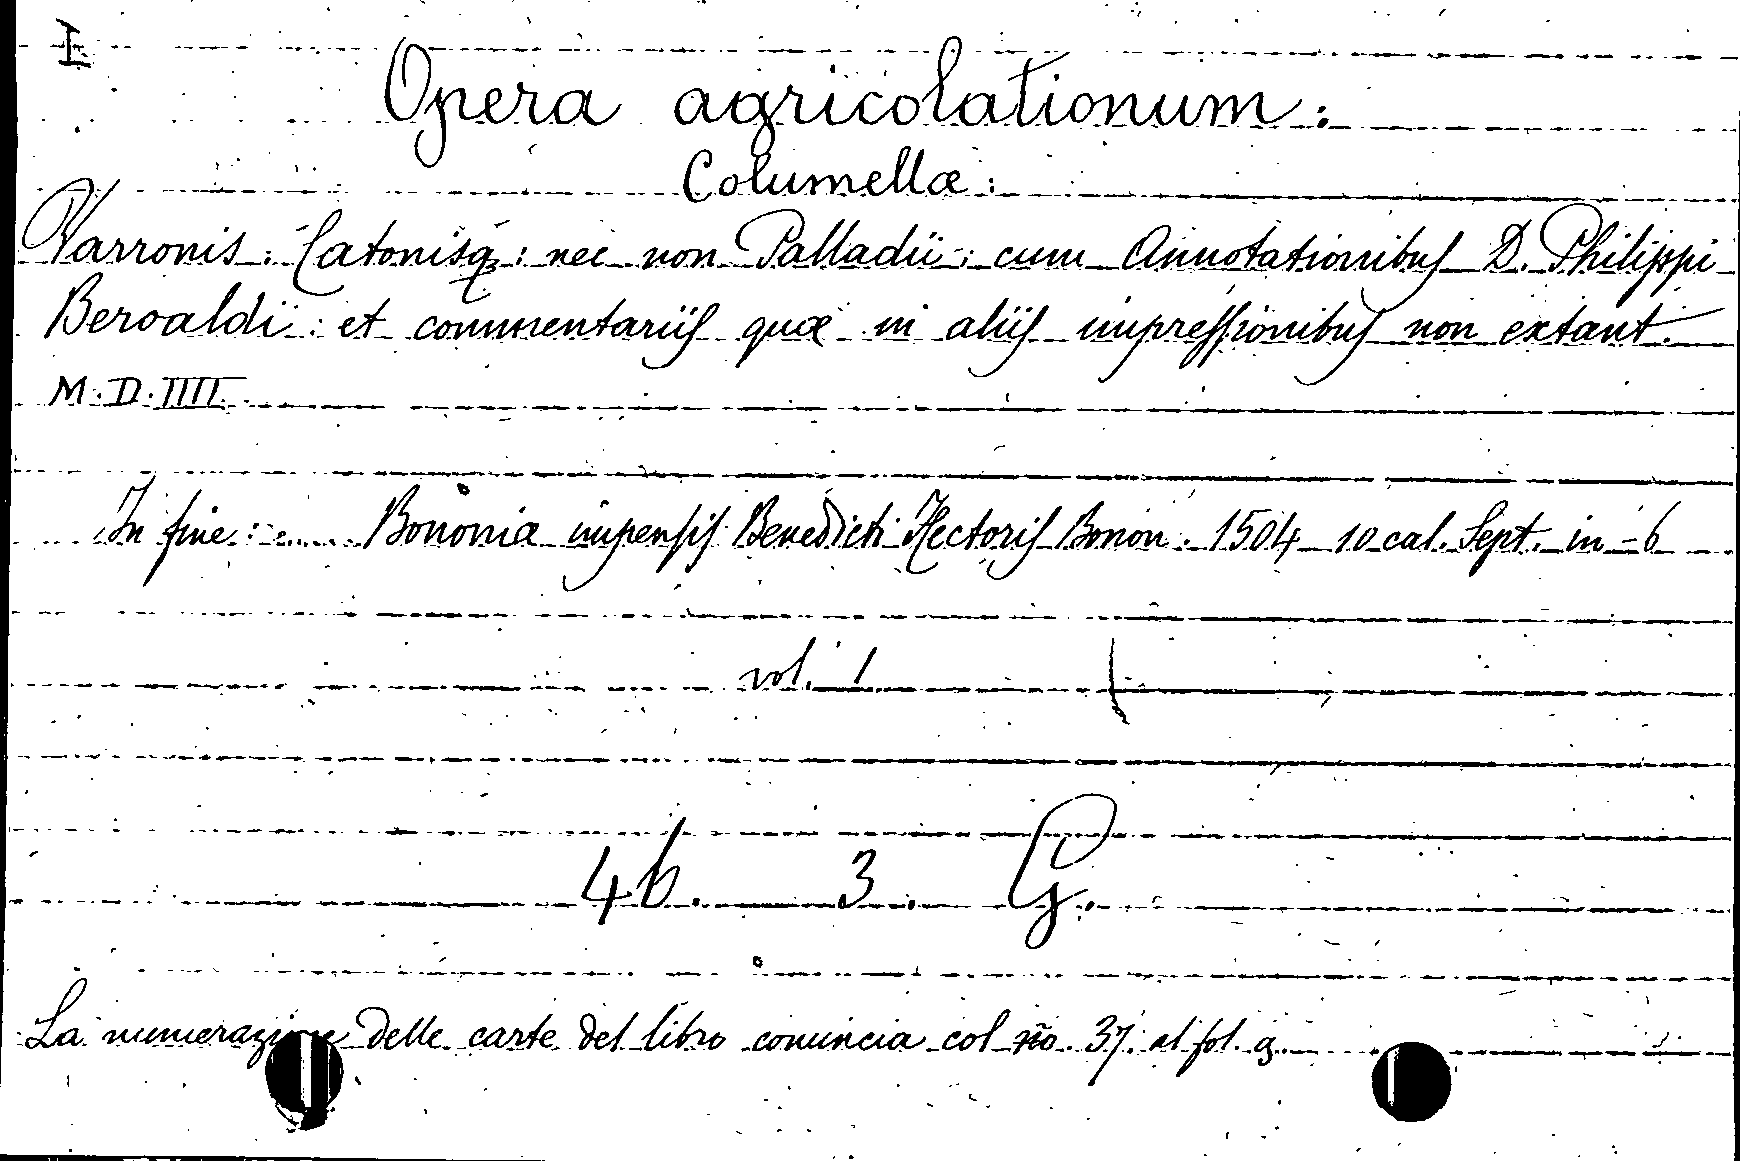 I
Opera agricolationum:
Columellæ:
Varronis: Catonisq;: nec non Palladii: cum Annotationibus D. Philippi
Beroaldi: et commentariis quæ in aliis impressionibus non extant.
M.D.IIII
In fine: ..... Bononiæ impensis Benedicti Hectoris Bonon. 1504 10 cal. Sept. in-6
vol. 1
46. 3. G.
La numerazione delle carte del libro comincia col nõ. 37. al fol. g.